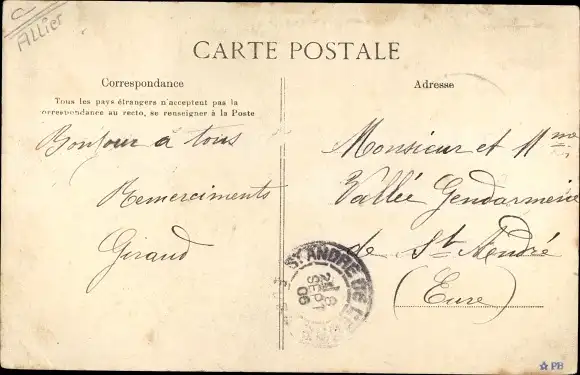 Allier
CARTE POSTALE
Correspondance
Tous les pays étrangers n'acceptent pas la
correspondance au recto, se renseigner à la Poste
Bonjour à tous
Remerciments
Giraud
Adresse
Monsieur et Mme
Vallée Gendarmerie
de St André
(Eure)
ST ANDRE DE
SEPT
06
PB